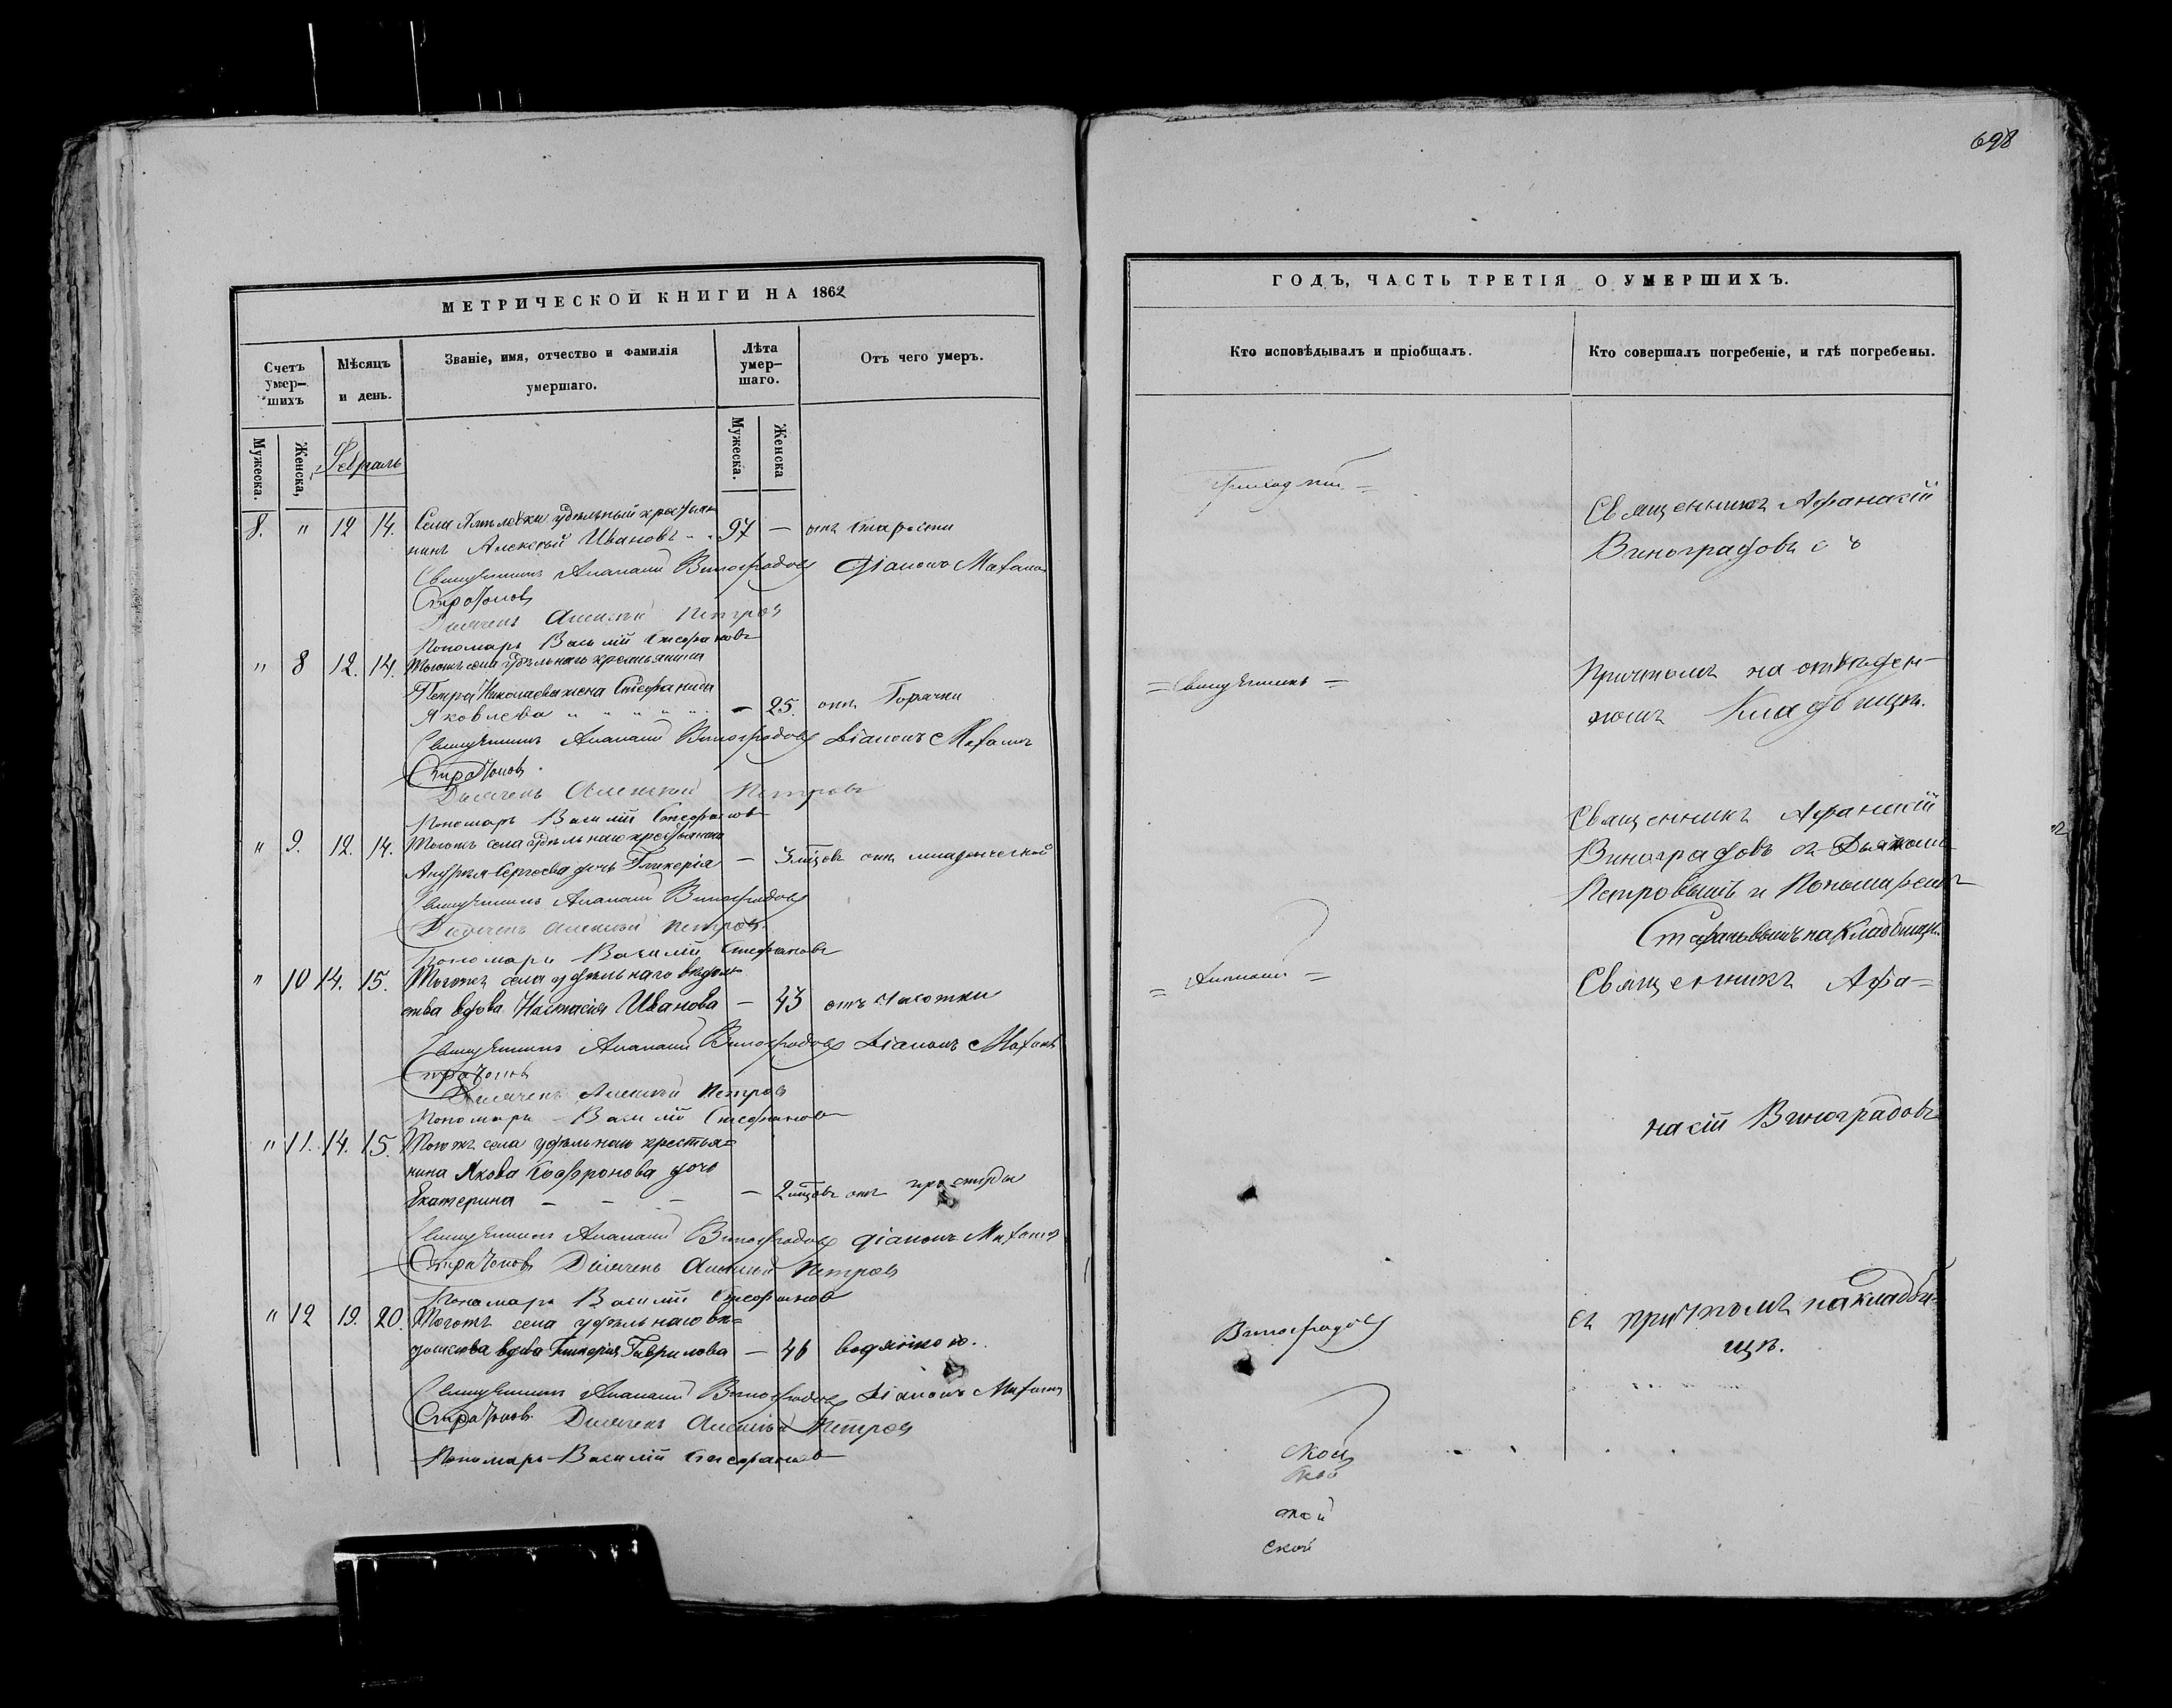 698
МЕТРИЧЕСКОЙ КНИГИ НА 1862
Счетъ умер-шихъ
Мѣсяцъ и день.
Званіе, имя, отчество и фамилія умершаго.
Лѣта умер-шаго.
Отъ чего умеръ.
Мужеска.
Женска,
Февраль
Мужеска.
Женска
8. " 12 14. Села удѣльный крестьян
нинъ Алексѣй Ивановъ 97 — отъ старости
Священникъ Афанасій Виноградовъ Діаконъ
Стратонов
Дьячекъ Алексѣй Петровъ
Пономарь Василій Стефановъ
" 8 12. 14. Тогожъ села удѣльнаго крестьянина
Петра Николаева жена Стефанида
Яковлева — 25. отъ Горячки
Священникъ Афанасій Виноградовъ Діаконъ
Стратонов
Дьячекъ Алексѣй Петровъ
Пономарь Василій Стефановъ
" 9. 12. 14. Тогожъ села удѣльнаго крестьянина
Андрея Сергеева дочь Гликерія — 3 мцовъ отъ младенческой
Священникъ Афанасій Виноградовъ
Дьячекъ Алексѣй Петровъ
Пономарь Василій Стефановъ
" 10 14. 15. Тогожъ села удѣльнаго вѣдом
ства вдова Настасія Иванова — 43 отъ чахотки
Священникъ Афанасій Виноградовъ Діаконъ
Стратонов
Дьячекъ Алексѣй Петровъ
Пономарь Василій Стефановъ
" 11. 14. 15. Тогожъ села удѣльнаго крестья=
нина Якова Софронова дочь
Екатерина — — — — 2 мцовъ отъ простуды
Священникъ Афанасій Виноградовъ діаконъ
Стратонов Дьячекъ Алексѣй Петровъ
Пономарь Василій Стефановъ
" 12 19. 20. Тогожъ села удѣльнаго вѣ=
домства вдова Гликерія Гаврилова — 46 водяною.
Священникъ Афанасій Виноградовъ Діаконъ
Стратонов Дьячекъ Алексѣй Петровъ
Пономарь Василій Стефановъ
ГОДЪ, ЧАСТЬ ТРЕТІЯ О УМЕРШИХЪ.
Кто исповѣдывалъ и пріобщалъ.
Кто совершалъ погребеніе, и гдѣ погребены.
= Священникъ =
= Афанасій =
Виноградовъ
Священникъ Афанасій
Виноградовъ съ
Причтомъ на отведен-
номъ Кладбищѣ.
Священникъ Афанасій
Виноградовъ съ Дьячкомъ
Петровымъ и Пономаремъ
Стефановымъ на Кладбищѣ.
Священникъ Афа=
насій Виноградовъ
съ причтомъ на кладби-
щѣ.
ской